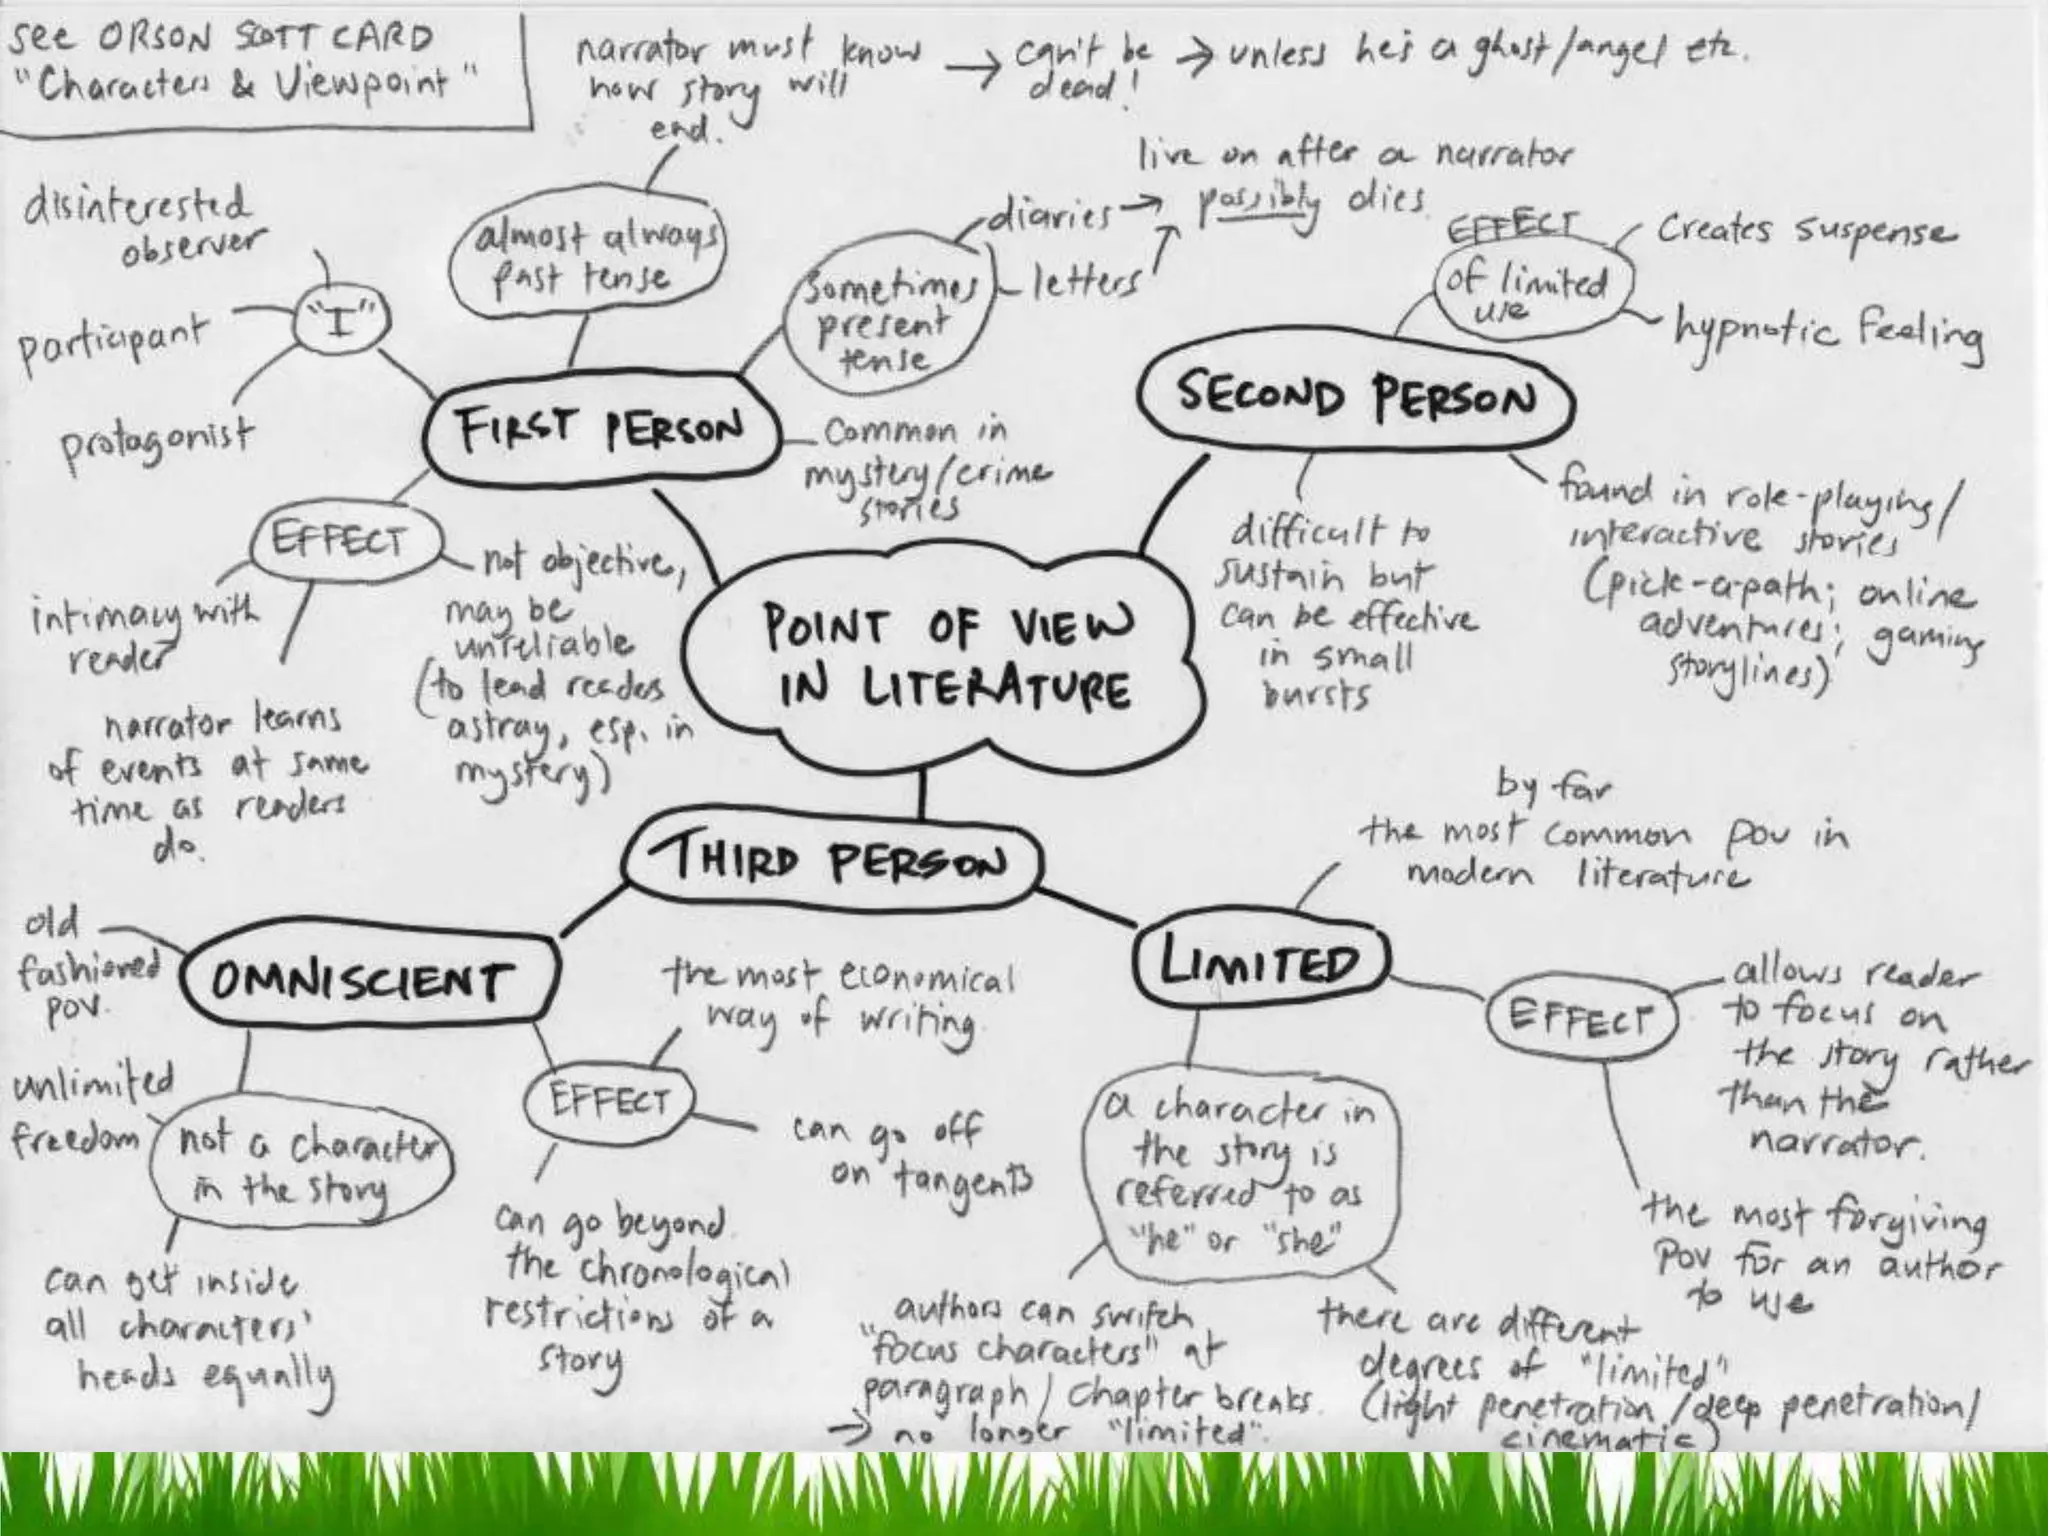 see ORSON SCOTT CARD
"Characters & Viewpoint"
narrator must know
how story will
end.
→ can't be
dead!
→ unless he's a ghost/angel etc.
almost always
past tense
disinterested
observer
participant
protagonist
"I"
Sometimes
present
tense
diaries →
letters
live on after a narrator
possibly dies.
FIRST PERSON
Common in
mystery/crime
stories
EFFECT
intimacy with
reader
narrator learns
of events at same
time as readers
do.
not objective,
may be
unreliable
(to lead readers
astray, esp. in
mystery)
SECOND PERSON
EFFECT
of limited
use
Creates suspense
hypnotic feeling
difficult to
sustain but
can be effective
in small
bursts
found in role-playing/
interactive stories
(pick-a-path; online
adventures; gaming
storylines)
POINT OF VIEW
IN LITERATURE
THIRD PERSON
OMNISCIENT
old
fashioned
pov.
unlimited
freedom
not a character
in the story
can get inside
all characters'
heads equally
EFFECT
the most economical
way of writing.
can go off
on tangents
can go beyond
the chronological
restrictions of a
story
LIMITED
by far
the most common pov in
modern literature
EFFECT
allows reader
to focus on
the story rather
than the
narrator.
the most forgiving
pov for an author
to use
a character in
the story is
referred to as
"he" or "she"
authors can switch
"focus characters" at
paragraph / chapter breaks.
→ no longer "limited".
there are different
degrees of "limited"
(light penetration/deep penetration/
cinematic)